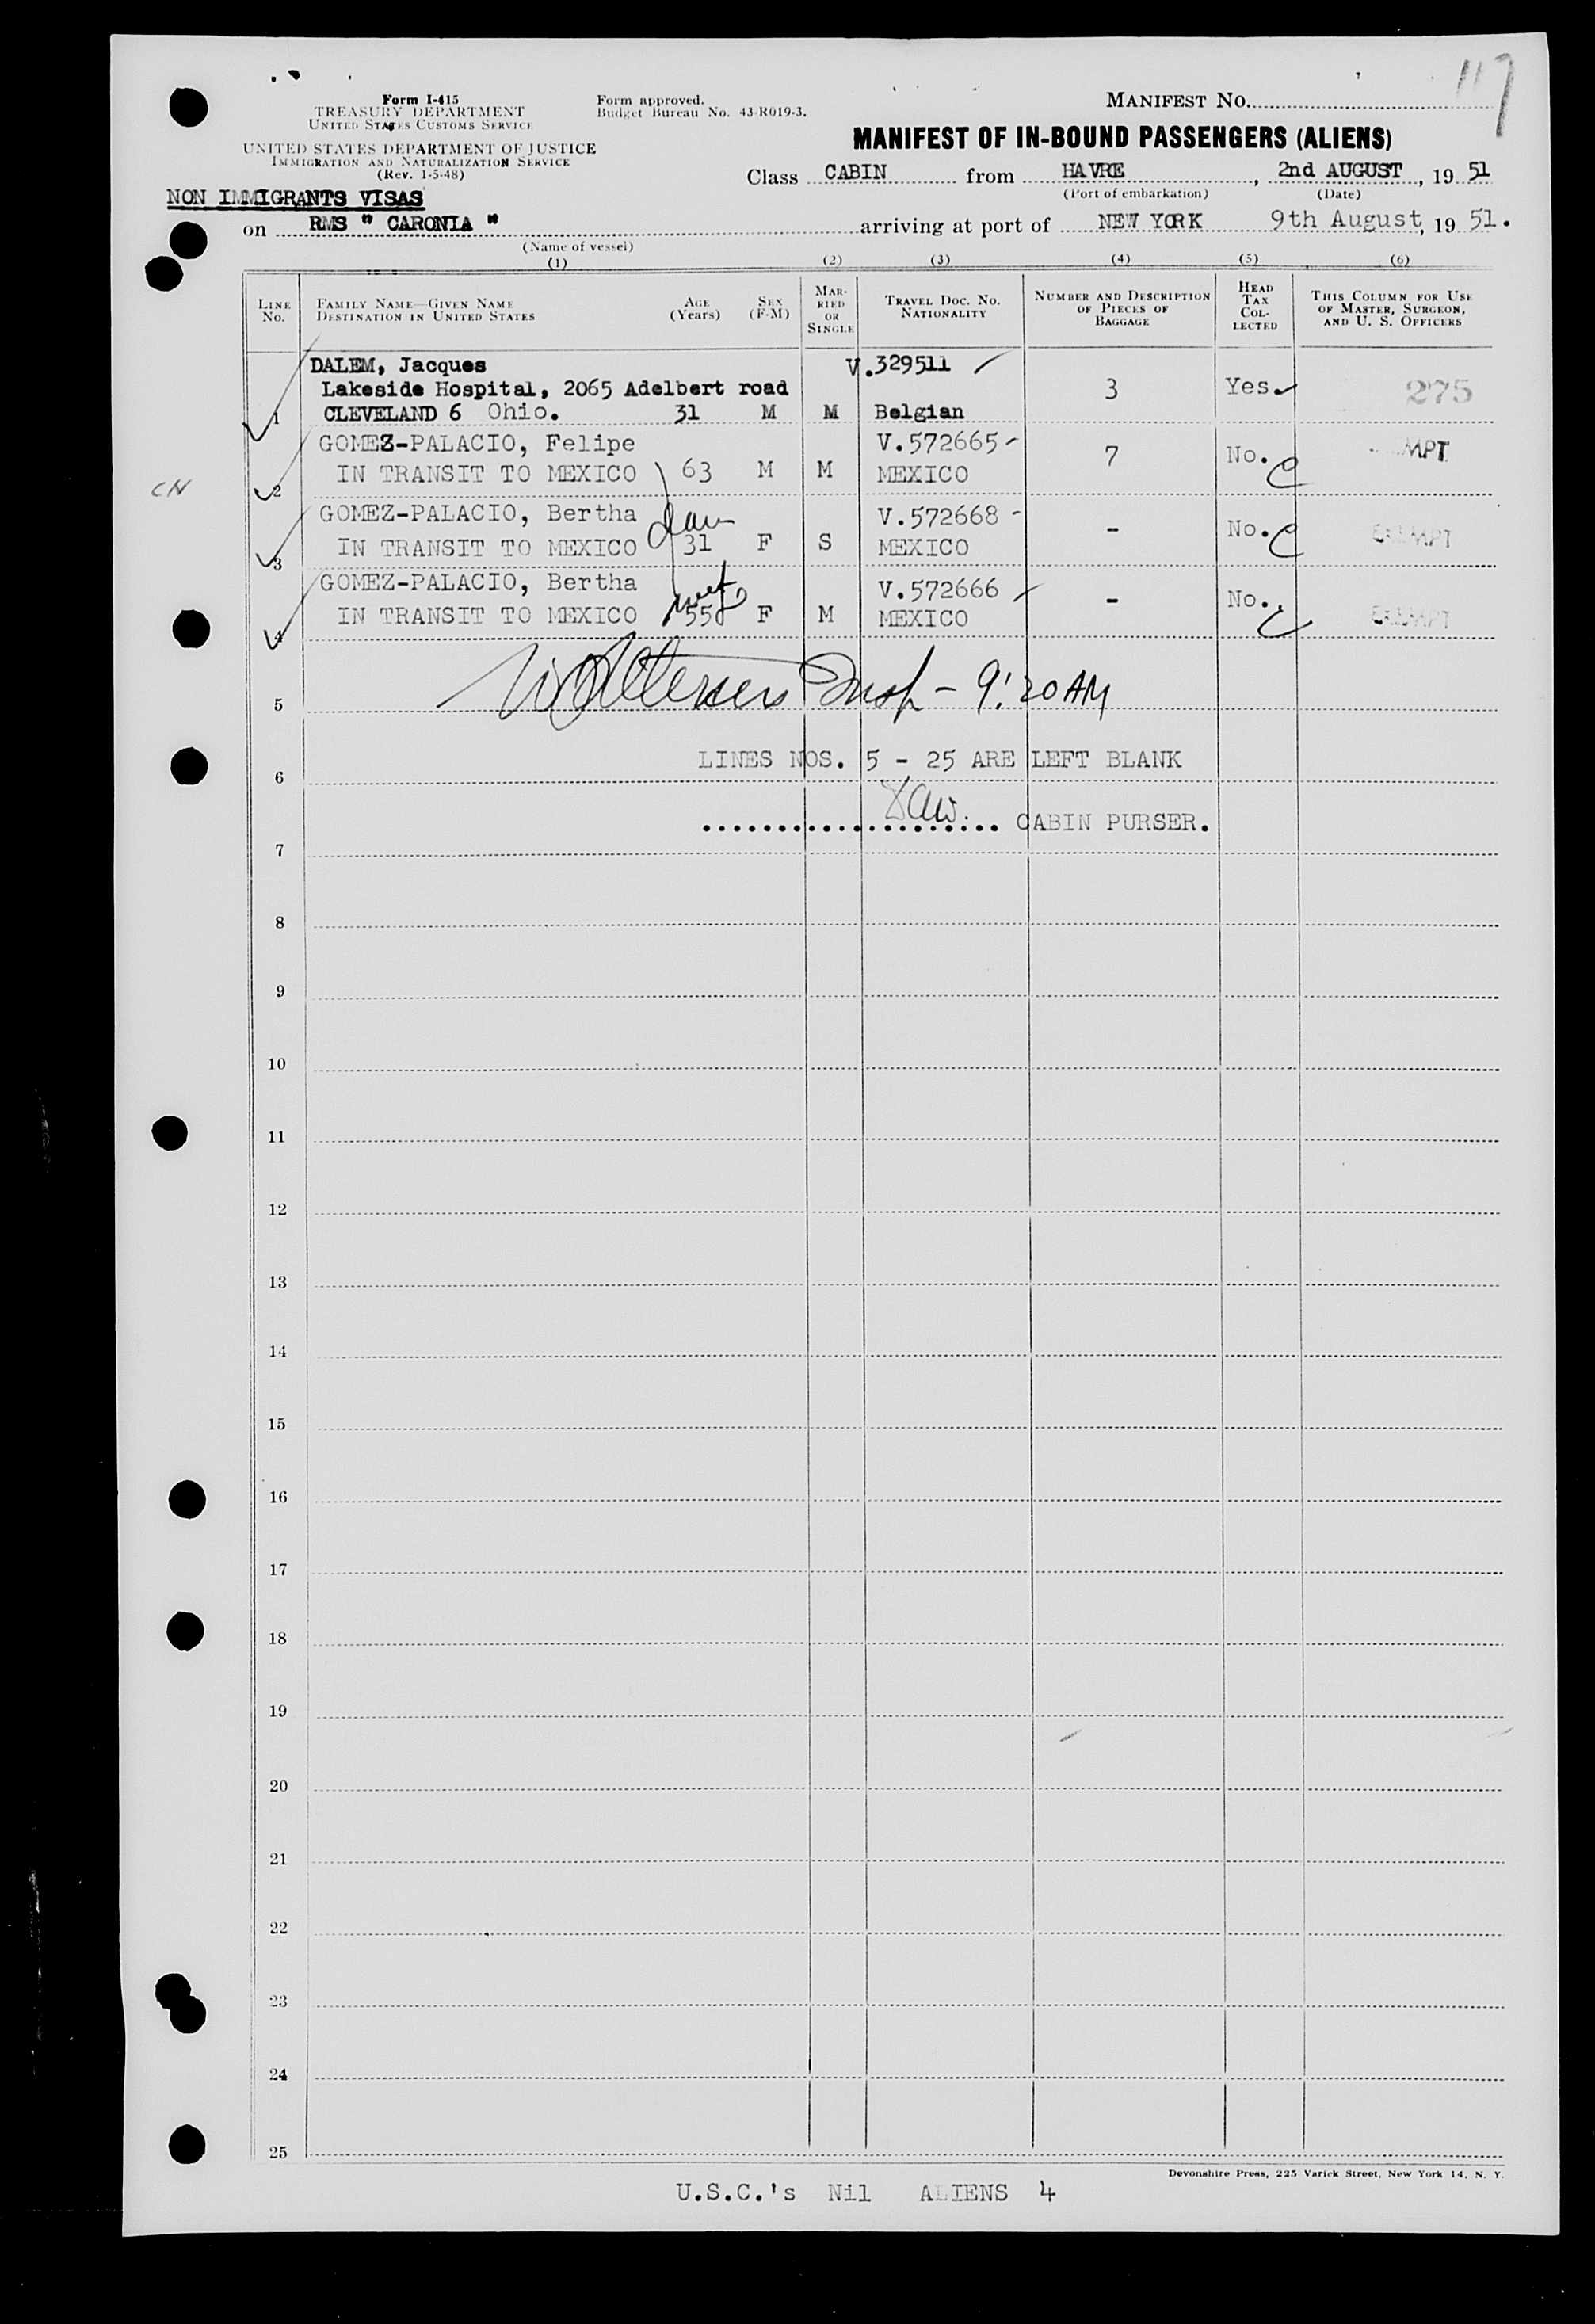 117
Form I-415
TREASURY DEPARTMENT
UNITED STATES CUSTOMS SERVICE
UNITED STATES DEPARTMENT OF JUSTICE
IMMIGRATION AND NATURALIZATION SERVICE
(Rev. 1-5-48)
Form approved.
Budget Bureau No. 43-R019-3.
MANIFEST NO.
MANIFEST OF IN-BOUND PASSENGERS (ALIENS)
Class CABIN from HAVRE, 2nd AUGUST, 19 51
(Port of embarkation) (Date)
NON IMMIGRANTS VISAS
on RMS " CARONIA " arriving at port of NEW YORK 9th August, 19 51.
(Name of vessel)
(1) (2) (3) (4) (5) (6)
LINE NO.
FAMILY NAME—GIVEN NAME
DESTINATION IN UNITED STATES
AGE (Years)
SEX (F-M)
MARRIED OR SINGLE
TRAVEL DOC. NO. NATIONALITY
NUMBER AND DESCRIPTION OF PIECES OF BAGGAGE
HEAD TAX COLLECTED
THIS COLUMN FOR USE OF MASTER, SURGEON, AND U. S. OFFICERS
DALEM, Jacques V.329511
Lakeside Hospital, 2065 Adelbert road 3 Yes 275
1 CLEVELAND 6 Ohio. 31 M M Belgian
GOMEZ-PALACIO, Felipe V.572665
CN 2 IN TRANSIT TO MEXICO 63 M M MEXICO 7 No.
GOMEZ-PALACIO, Bertha V.572668
3 IN TRANSIT TO MEXICO 31 F S MEXICO - No. EXEMPT
GOMEZ-PALACIO, Bertha V.572666
4 IN TRANSIT TO MEXICO 55 F M MEXICO - No. EXEMPT
Insp - 9:20 AM
5
LINES NOS. 5 - 25 ARE LEFT BLANK
6
CABIN PURSER.
7
8
9
10
11
12
13
14
15
16
17
18
19
20
21
22
23
24
25
Devonshire Press, 225 Varick Street, New York 14, N. Y.
U.S.C.'s Nil ALIENS 4